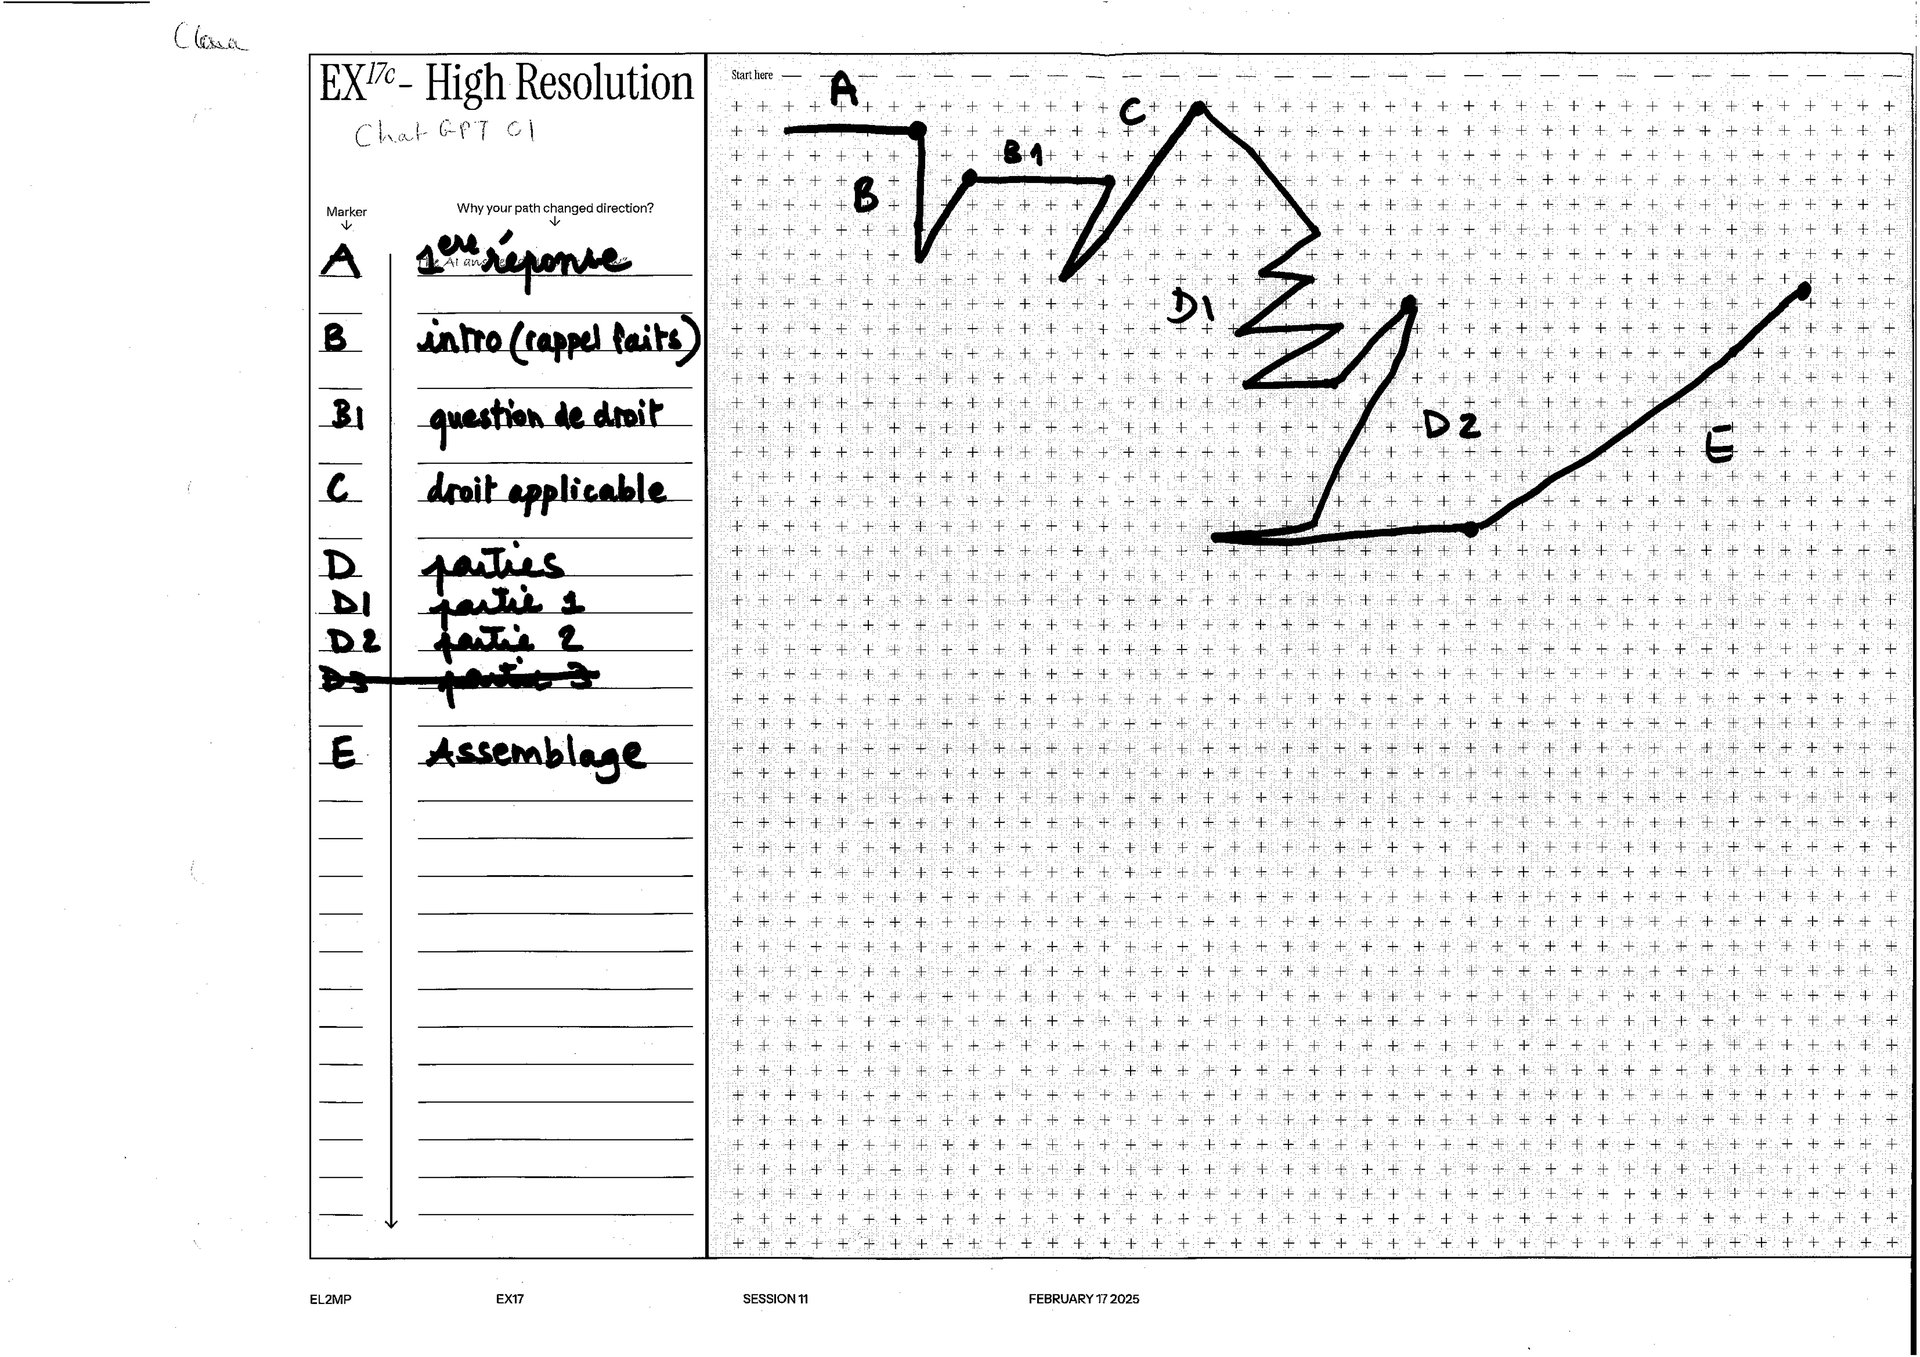 EX17c - High Resolution
Chat GPT C1
Marker
Why your path changed direction?
A 1ere réponse
B intro (rappel faits)
B1 question de droit
C droit applicable
D parties
D1 partie 1
D2 partie 2
D3 partie 3
E Assemblage
Start here
A
B
B1
C
D1
D2
E
EL2MP EX17 SESSION 11 FEBRUARY 17 2025